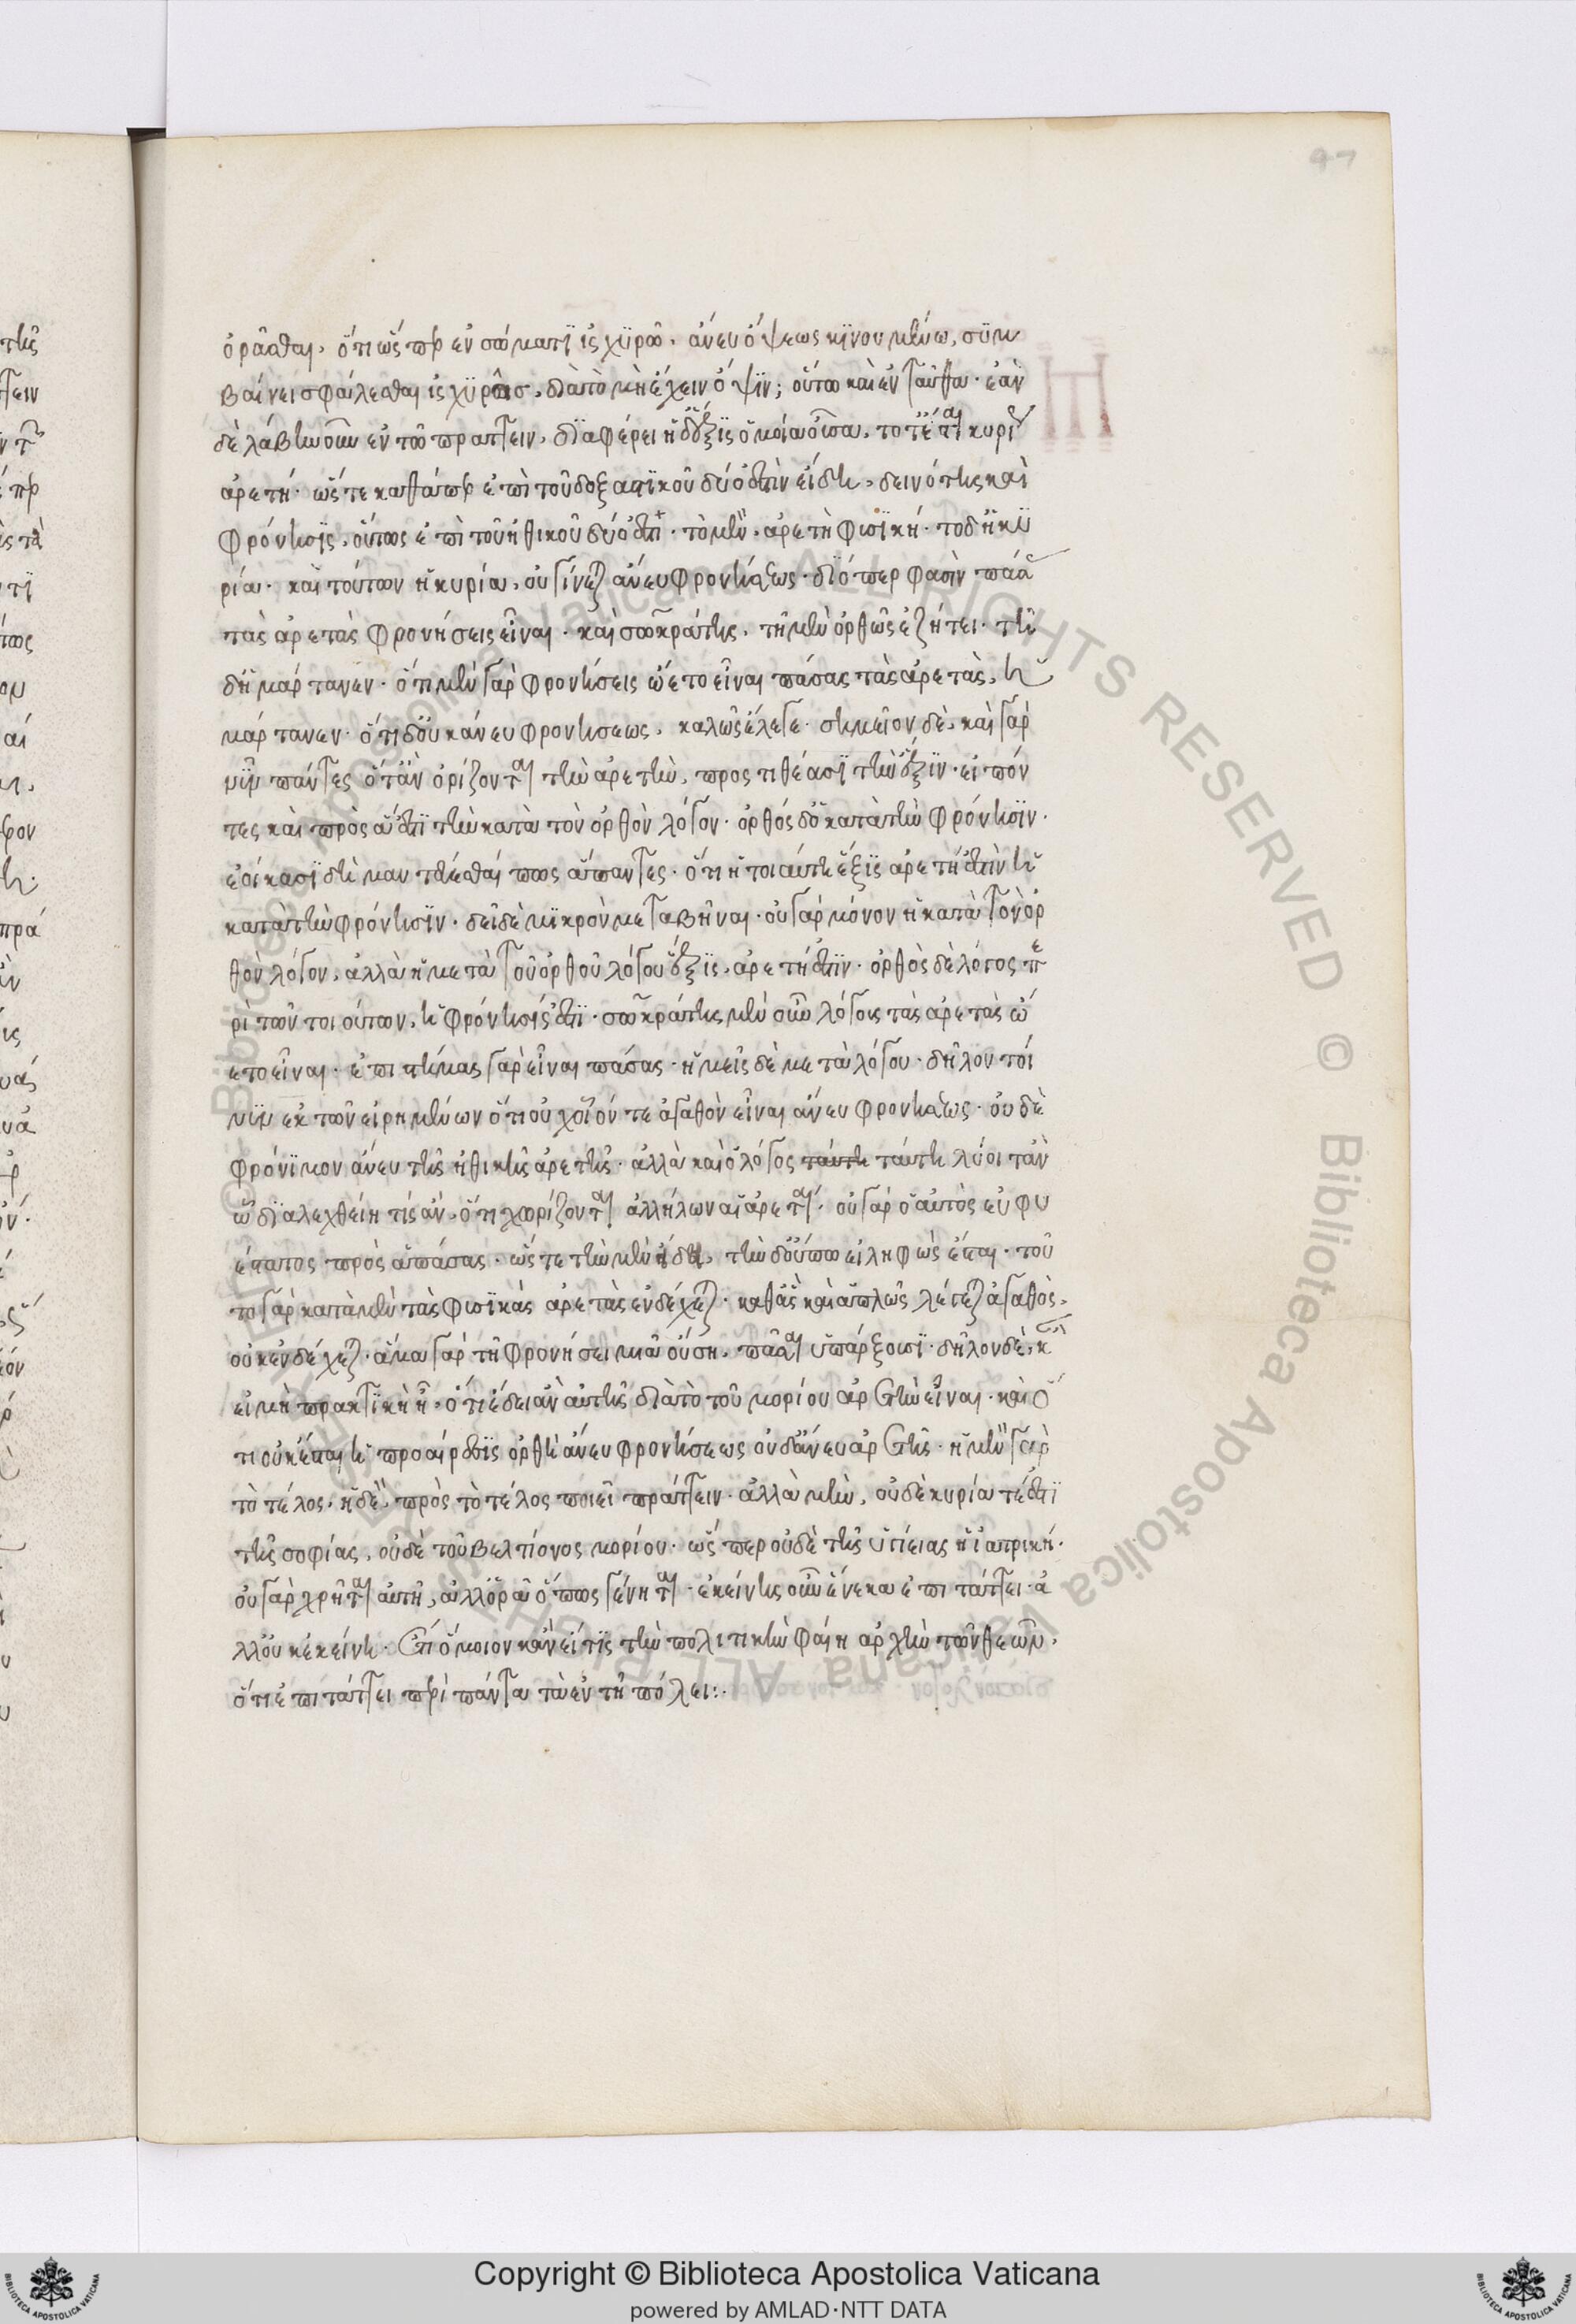 97
ὁρᾶσθαι, ὅτι ὥσπερ ἐν σώματι ἰσχυρῶ, ἄνευ ὄψεως κινουμένω, συμ
βαίνει σφάλεσθαι ἰσχυρῶς, διὰ τὸ μὴ ἔχειν ὄψιν; οὕτω καὶ ἐνταῦθα· ἐὰν
δὲ λάβη νοῦν ἐν τῶ πράττειν, διαφέρει ἡ δ' ἕξις ὁμοία οὖσα, τότ' ἔσται κυρί
ἀρετή· ὥστε καθάπερ ἐπὶ τοῦ δοξαστικοῦ δύο ἐστὶν εἴδη, δεινότης καὶ
φρόνησις, οὕτως ἐπὶ τοῦ ἠθικοῦ δύο ἐστὶ· τὸ μὲν, ἀρετὴ φυσικὴ· τὸ δ' ἡ κυ
ρία· καὶ τούτων ἡ κυρία, οὐ γίνεται ἄνευ φρονήσεως· διόπερ φασὶν πάσας
τὰς ἀρετὰς φρονήσεις εἶναι· καὶ σωκράτης, τῆ μὲν ὀρθῶς ἐζήτει· τῆ
δ' ἡμάρτανεν· ὅτι μὲν γὰρ φρονήσεις ὤετο εἶναι πάσας τὰς ἀρετὰς, ἡ
μάρτανεν· ὅτι δ' οὐκ ἄνευ φρονήσεως, καλῶς ἔλεγε· σημεῖον δὲ, καὶ γὰρ
νῦν πάντες ὅταν ὁρίζονται τὴν ἀρετὴν, προστιθέασι τὴν ἕξιν· εἰπόν
τες καὶ πρὸς ἅ ἐστι τὴν κατὰ τὸν ὀρθὸν λόγον· ὀρθὸς δ' ὁ κατὰ τὴν φρόνησιν·
ἐοίκασι δὴ μαντεύεσθαί πως ἅπαντες· ὅτι ἡ τοιαύτη ἕξις ἀρετή ἐστὶν ἡ
κατὰ τὴν φρόνησιν· δεῖ δὲ μικρὸν μεταβῆναι· οὐ γὰρ μόνον ἡ κατὰ τὸν ὀρ
θὸν λόγον, ἀλλὰ ἡ μετὰ τοῦ ὀρθοῦ λόγου ἕξις, ἀρετή ἐστιν· ὀρθὸς δὲ λόγος πε
ρὶ τῶν τοιούτων, ἡ φρόνησίς ἐστι· σωκράτης μὲν οὖν λόγοις τὰς ἀρετὰς ὤ
ετο εἶναι· ἐπιστήμας γὰρ εἶναι πάσας· ἡμεῖς δὲ μετὰ λόγου· δῆλον τοί
νυν ἐκ τῶν εἰρημένων ὅτι οὐχ οἷόν τε ἀγαθὸν εἶναι ἄνευ φρονήσεως· οὐδὲ
φρόνιμον ἄνευ τῆς ἠθικῆς ἀρετῆς· ἀλλὰ καὶ ὁ λόγος ταύτη ταύτη λύοιτ' ἂν
ὧ διαλεχθείη τίς ἄν, ὅτι χωρίζονται ἀλλήλων αἱ ἀρεταί· οὐ γὰρ ὁ αὐτὸς εὐφυ
έστατος πρὸς ἁπάσας· ὥστε τὴν μὲν ἤδη, τὴν δ' οὔπω εἰληφὼς ἔσται· τοῦ
το γὰρ κατὰ μὲν τὰς φυσικὰς ἀρετὰς ἐνδέχεται· καθ' ἃς καὶ ἁπλῶς λέγεται ἀγαθὸς,
οὐκ ἐνδέχεται· ἅμα γὰρ τῆ φρονήσει μιᾶ οὔση, πᾶσαι ὑπάρξουσι· δῆλον δὲ, κἂν
εἰ μὴ πρακτικὴ ἦ, ὅτι ἔδει ἂν αὐτῆς διὰ τὸ τοῦ μορίου ἀρετὴν εἶναι· καὶ ὅ
τι οὐκ ἔσται ἡ προαίρεσις ὀρθὴ ἄνευ φρονήσεως οὐδ' ἄνευ ἀρετῆς· ἡ μὲν γὰρ
τὸ τέλος, ἡ δὲ, πρὸς τὸ τέλος ποιεῖ πράττειν· ἀλλὰ μὴν, οὐδὲ κυρία τέ ἐστι
τῆς σοφίας, οὐδὲ τοῦ βελτίονος μορίου· ὥσπερ οὐδὲ τῆς ὑγιείας ἡ ἰατρική·
οὐ γὰρ χρῆται αὐτῆ, ἀλλ' ὁρᾶ ὅπως γένηται· ἐκείνης οὖν ἕνεκα ἐπιτάττει· ἀ
λλ' οὐκ ἐκείνη· ἔτι ὅμοιον κἂν εἴ τις τὴν πολιτικὴν φαίη ἄρχειν τῶν θεῶν,
ὅτι ἐπιτάττει περὶ πάντα τὰ ἐν τῆ πόλει:·
Copyright © Biblioteca Apostolica Vaticana
powered by AMLAD·NTT DATA